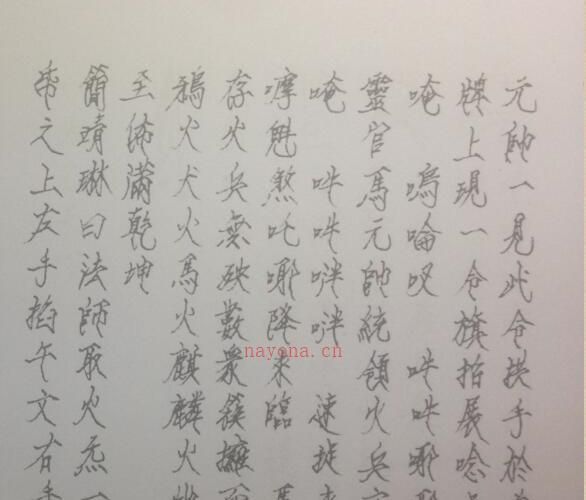 元帥一見此令拱手於
牌上現一令旗招展唸
唵 嗚啮叹 吽吽哪
靈官馬元帥統領火兵
唵 吽吽𠵇𠵇 速
摩魁煞吒哪降来臨
存火兵無殃數衆簇擁
鴉火犬火馬火麒麟火
至佈滿乾坤
簡靖琳曰法師取火炁一
帝之上左手掐午文右手
nayona.cn